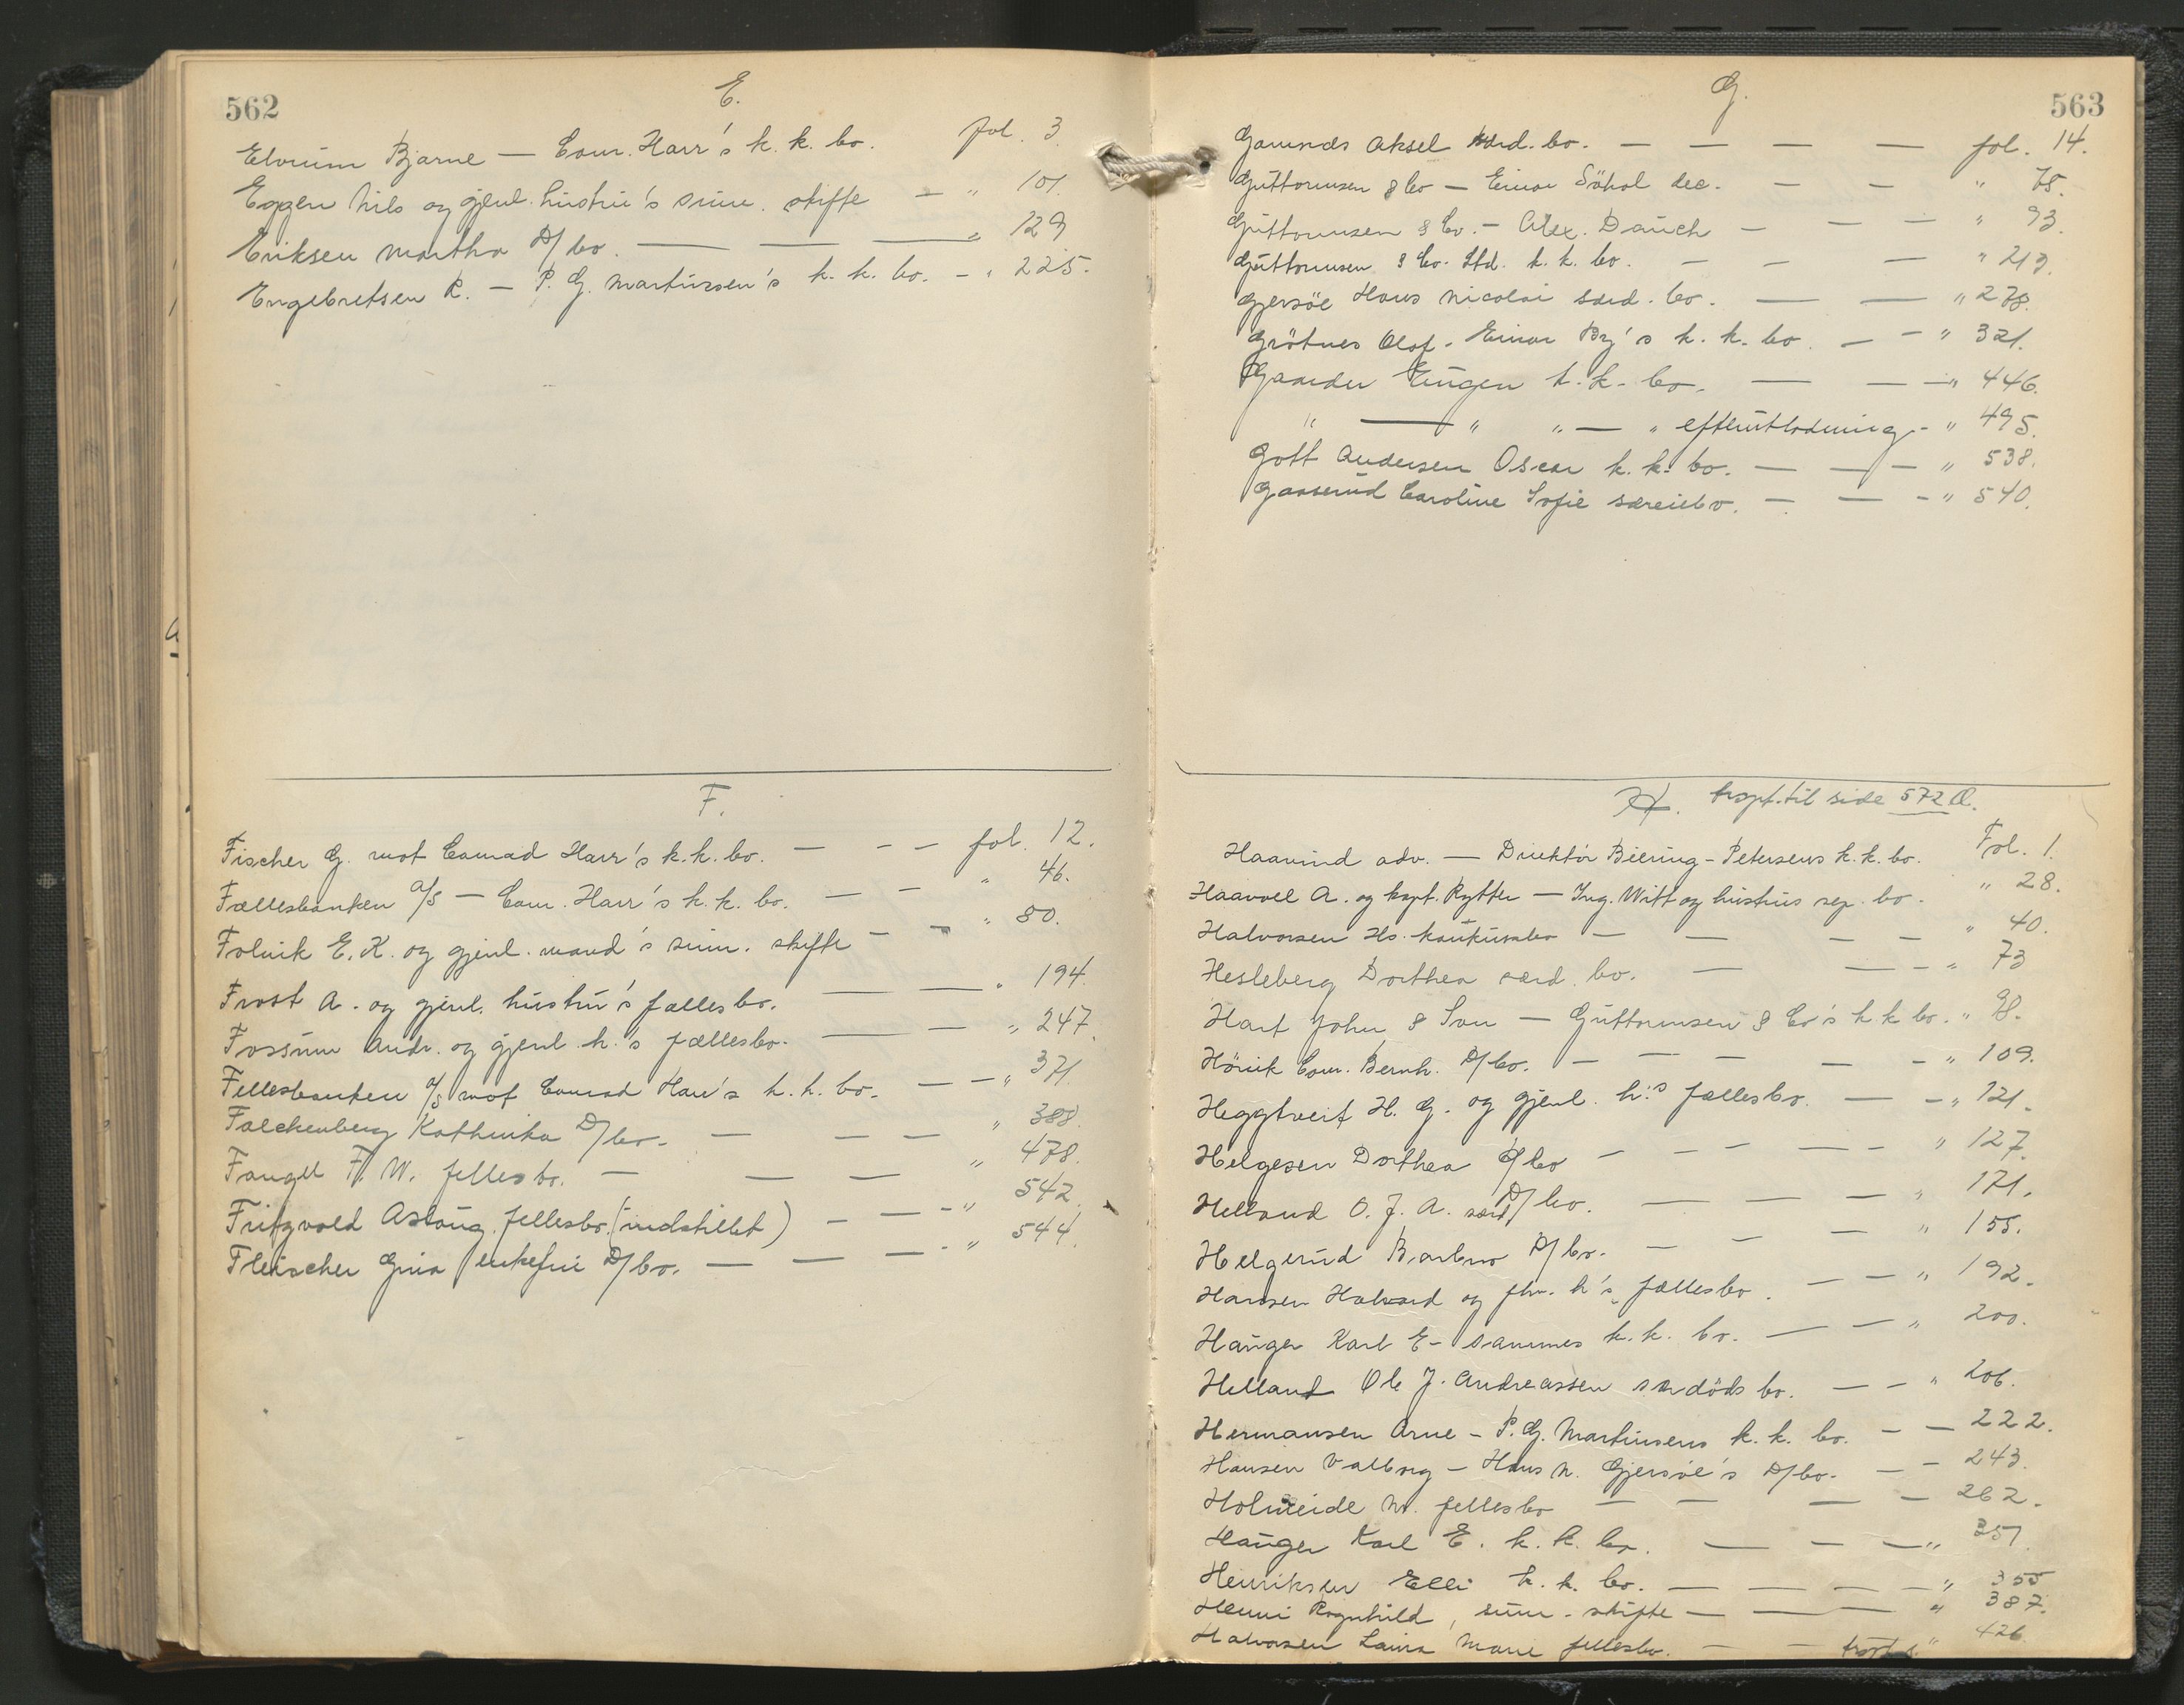 562
E.
Elvrum Bjarne — Conr. Harr's k. k. bo. fol. 3.
Eggen Nils og gjenl. hustru's sum. skifte — " 101.
Eriksen Martha D/bo. — — — " 129
Engebretsen R. — P. G. Martinsen's k. k. bo. - " 225.
F.
Fischer G. mot Conrad Harr's k. k. bo. — - - fol. 12.
Fællesbanken A/S — Conr. Harr's k. k. bo. — — " 46.
Folvik E. K. og gjenl. mand's sum. skifte - - " 80.
Frost A. og gjenl. hustru's fællesbo. — — " 194.
Fossum Andr. og gjenl. h.'s fællesbo. — — " 247.
Fellesbanken A/S mot Conrad Harr's k. k. bo. — — " 371.
Falckenberg Kathinka D/bo. — — — " 388.
Fangel F. W. fellesbo. — — — " 478.
Fritzvold Aslaug. fellesbo. (indstillet) — — - " 542
Fleischer Gina enkefru D/bo. — — — - " 544.
563
G.
Gamnæs Aksel særd. bo. — — — — fol. 14.
Guttormsen & Co — Einar Söhol dec. — — " 75.
Guttormsen & Co. — Alex. Dauch — — — " 93.
Guttormsen & Co. Ltd. k. k. bo. — — — " 213.
Gjersöe Hans Nicolai særd. bo. — — " 278.
Grötnes Olaf - Einar By's k. k. bo. — — " 321.
Gaarder Eugen k. k. bo. — — — " 446.
" — " " — " efterutlodning - " 495.
Gott Andersen Oscar k. k. bo. — — — " 538.
Gaaserud Caroline Sofie særeiebo. — — - " 540.
H. trspt. til side 572 Q.
Haavind adv. — Direktör Biering-Petersens k. k. bo. Fol. 1.
Haavoll A. og kapt. Rytter — Ing. Witt og hustrus sep. bo. " 28.
Halvorsen Hs. konkursbo — — — — " 40.
Hesleberg Dorthea særd. bo. — — — " 73
Hart John & Son — Guttormsen & Co's k. k. bo. " 98.
Hörvik Conr. Bernh. D/bo. — — — — - " 109.
Heggtveit H. G. og gjenl. h.'s fællesbo. — — " 121.
Helgesen Dorthea D/bo — — — — — " 127.
Helland O. J. A. særd/bo. — — — " 171.
Helgerud Barbro D/bo. — — — " 155.
Hansen Halvard og fhv. h's fællesbo. — — " 192.
Hauger Karl E - sammes k. k. bo. — — " 200.
Helland Ole J. Andreassen særdödsbo. — — " 206.
Hermansen Arne - P. G. Martinsens k. k. bo. — — 222.
Hansen Valborg - Hans N. Gjersöe's D/bo. — — 243.
Holmeide M. fellesbo — — — — 262.
Hauger Karl E. k. k. bo. — — — " 351.
Henriksen Elli k. k. bo. — — — — " 355
Henni Ragnhild, sum. skifte — — — " 387.
Halvorsen Laura Marie fellesbo. — — " 426